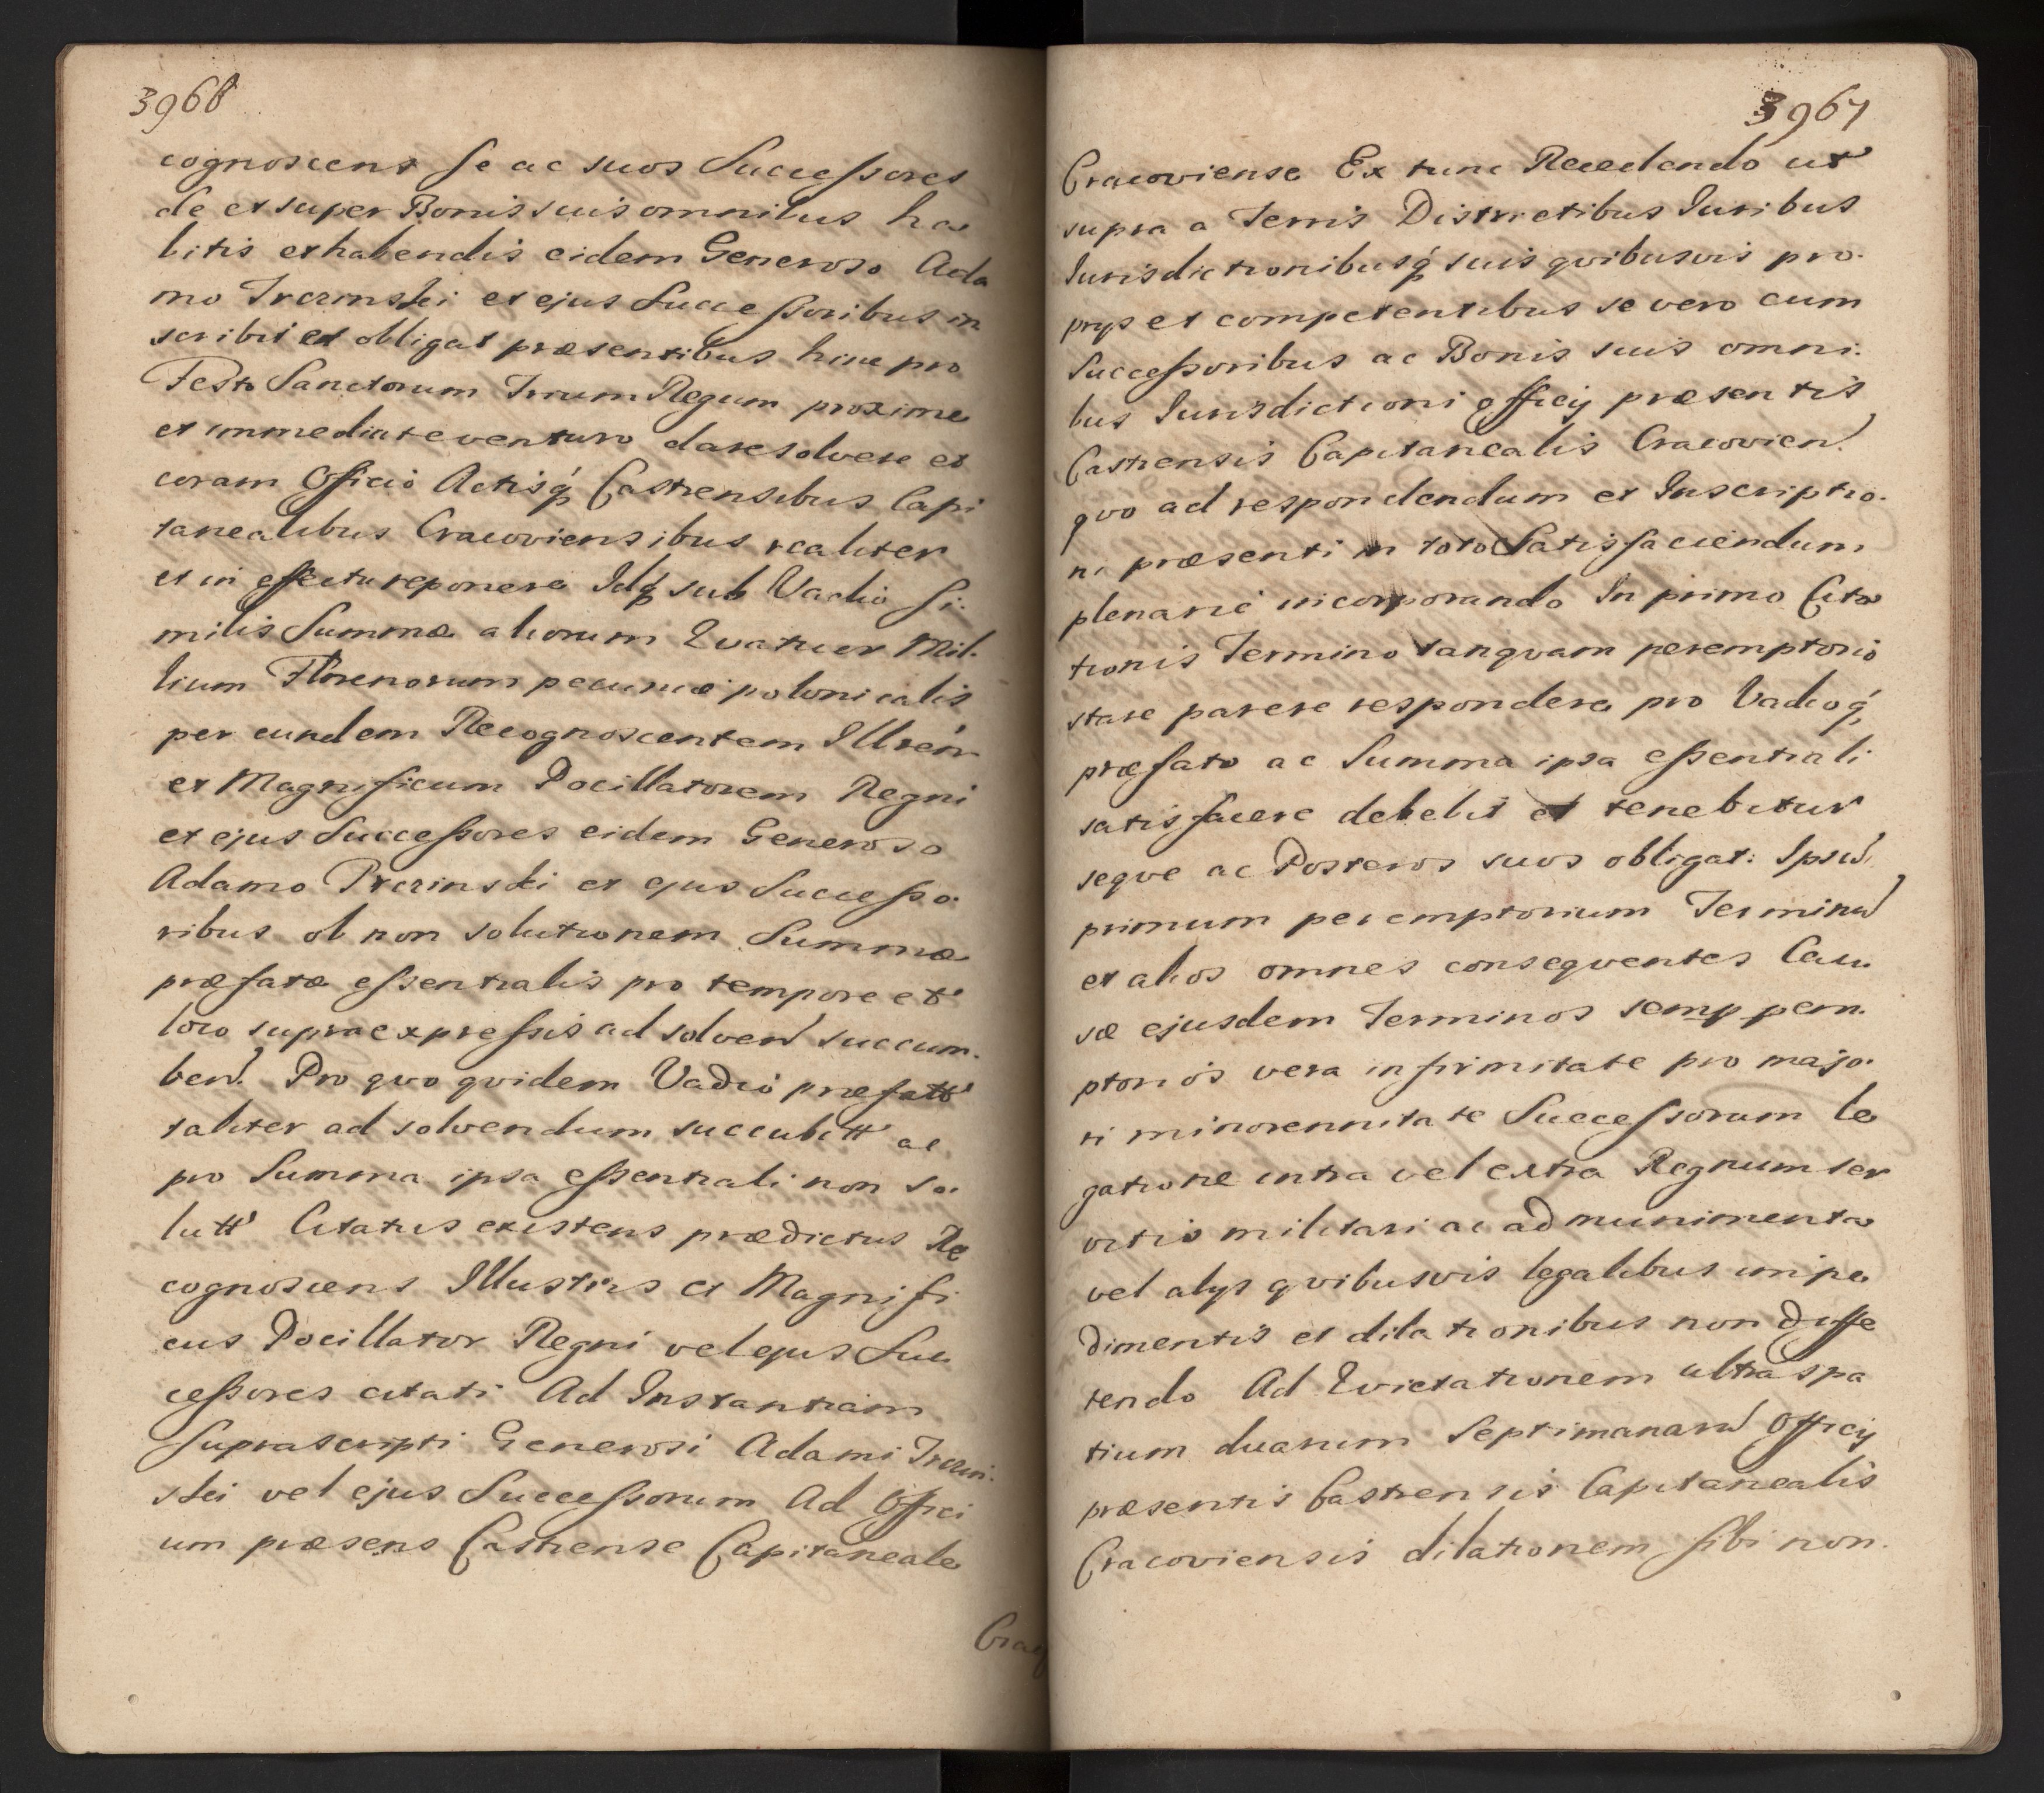 3966
cognoscens se ac suos Successores
de et super Bonis suis omnibus ha
bitis et habendis eidem Generoso Ada
mo Trzcinski et ejus Successoribus in
scribit et obligat præsentibus hinc pro
Festo Sanctorum Trium Regum proxime
et immediate venturo dare solvere et
coram Officio Actisq́ Castrensibus Capi
tanealibus Cracoviensibus realiter
et in effectu reponere Idq́ sub Vadio si.
milis Summæ aliorum Quatuor Mil.
lium Florenorum pecuniæ polonicalis
per eundem Recognoscentem Illrem
et Magnificum Pocillatorem Regni
et ejus Successores eidem Generoso
Adamo Trzcinski et ejus Successo.
ribus ob non solutionem Summæ
præfatæ essentialis pro tempore et
loco supra expressis ad solvend succum.
bend. Pro quo quidem Vadio præfatto
taliter ad solvendum succubitt ac
pro Summa ipsa essentiali non so.
lutt Citatus existens prædictus Re
cognoscens Illustris et Magnifi
cus Pocillator Regni vel ejus Suc
cessores citati Ad Instantiam
suprascripti Generosi Adami Trzcin.
ski vel ejus Successorum Ad Offici
um præsens Castrense Capitaneale
Crac
3967
Cracoviense Ex tunc Recedendo ut
supra a Terris Districtibus Iuribus
Iurisdictionibusq́ suis qvibusvis pro.
prys et competentibus se vero cum
Successoribus ac Bonis suis omni.
bus Iurisdictioni officij præsentis
Castrensis Capitanealis Cracovien.
qvo ad respondendum et Inscriptio.
ni præsenti in toto Satisfaciendum
plenarie incorporando In primo Cita
tionis Termino tanqvam peremptorio
stare parere respondere pro Vadioq́
præfato ac Summa ipsa essentiali
satisfacere debebit et tenebitur
seqve ac Posteros suos obligat: Ipsu
primum peremptorium Terminu
et alios omnes conseqventes Cau.
sæ ejusdem Terminos semp pem.
ptorios vera infirmitate pro majo.
ri minorennitate Successorum le
gatione intra vel extra Regnum ser
vitio militari ac ad munimenta
vel alys qvibusvis legalibus impe
dimentis et dilationibus non diffe
rendo Ad Evictationem ultra spa
tium duarum Septimanaru Officij
præsentis Castrensis Capitanealis
Cracoviensis dilationem sibi non.